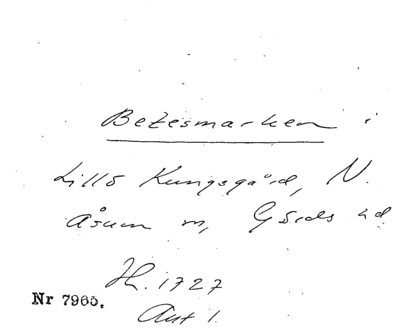 Betesmarken i
Lillö Kungsgård, N.
Åsum sn, Gärds hd
Jh. 1727
Nr 7965.
Akt 1.